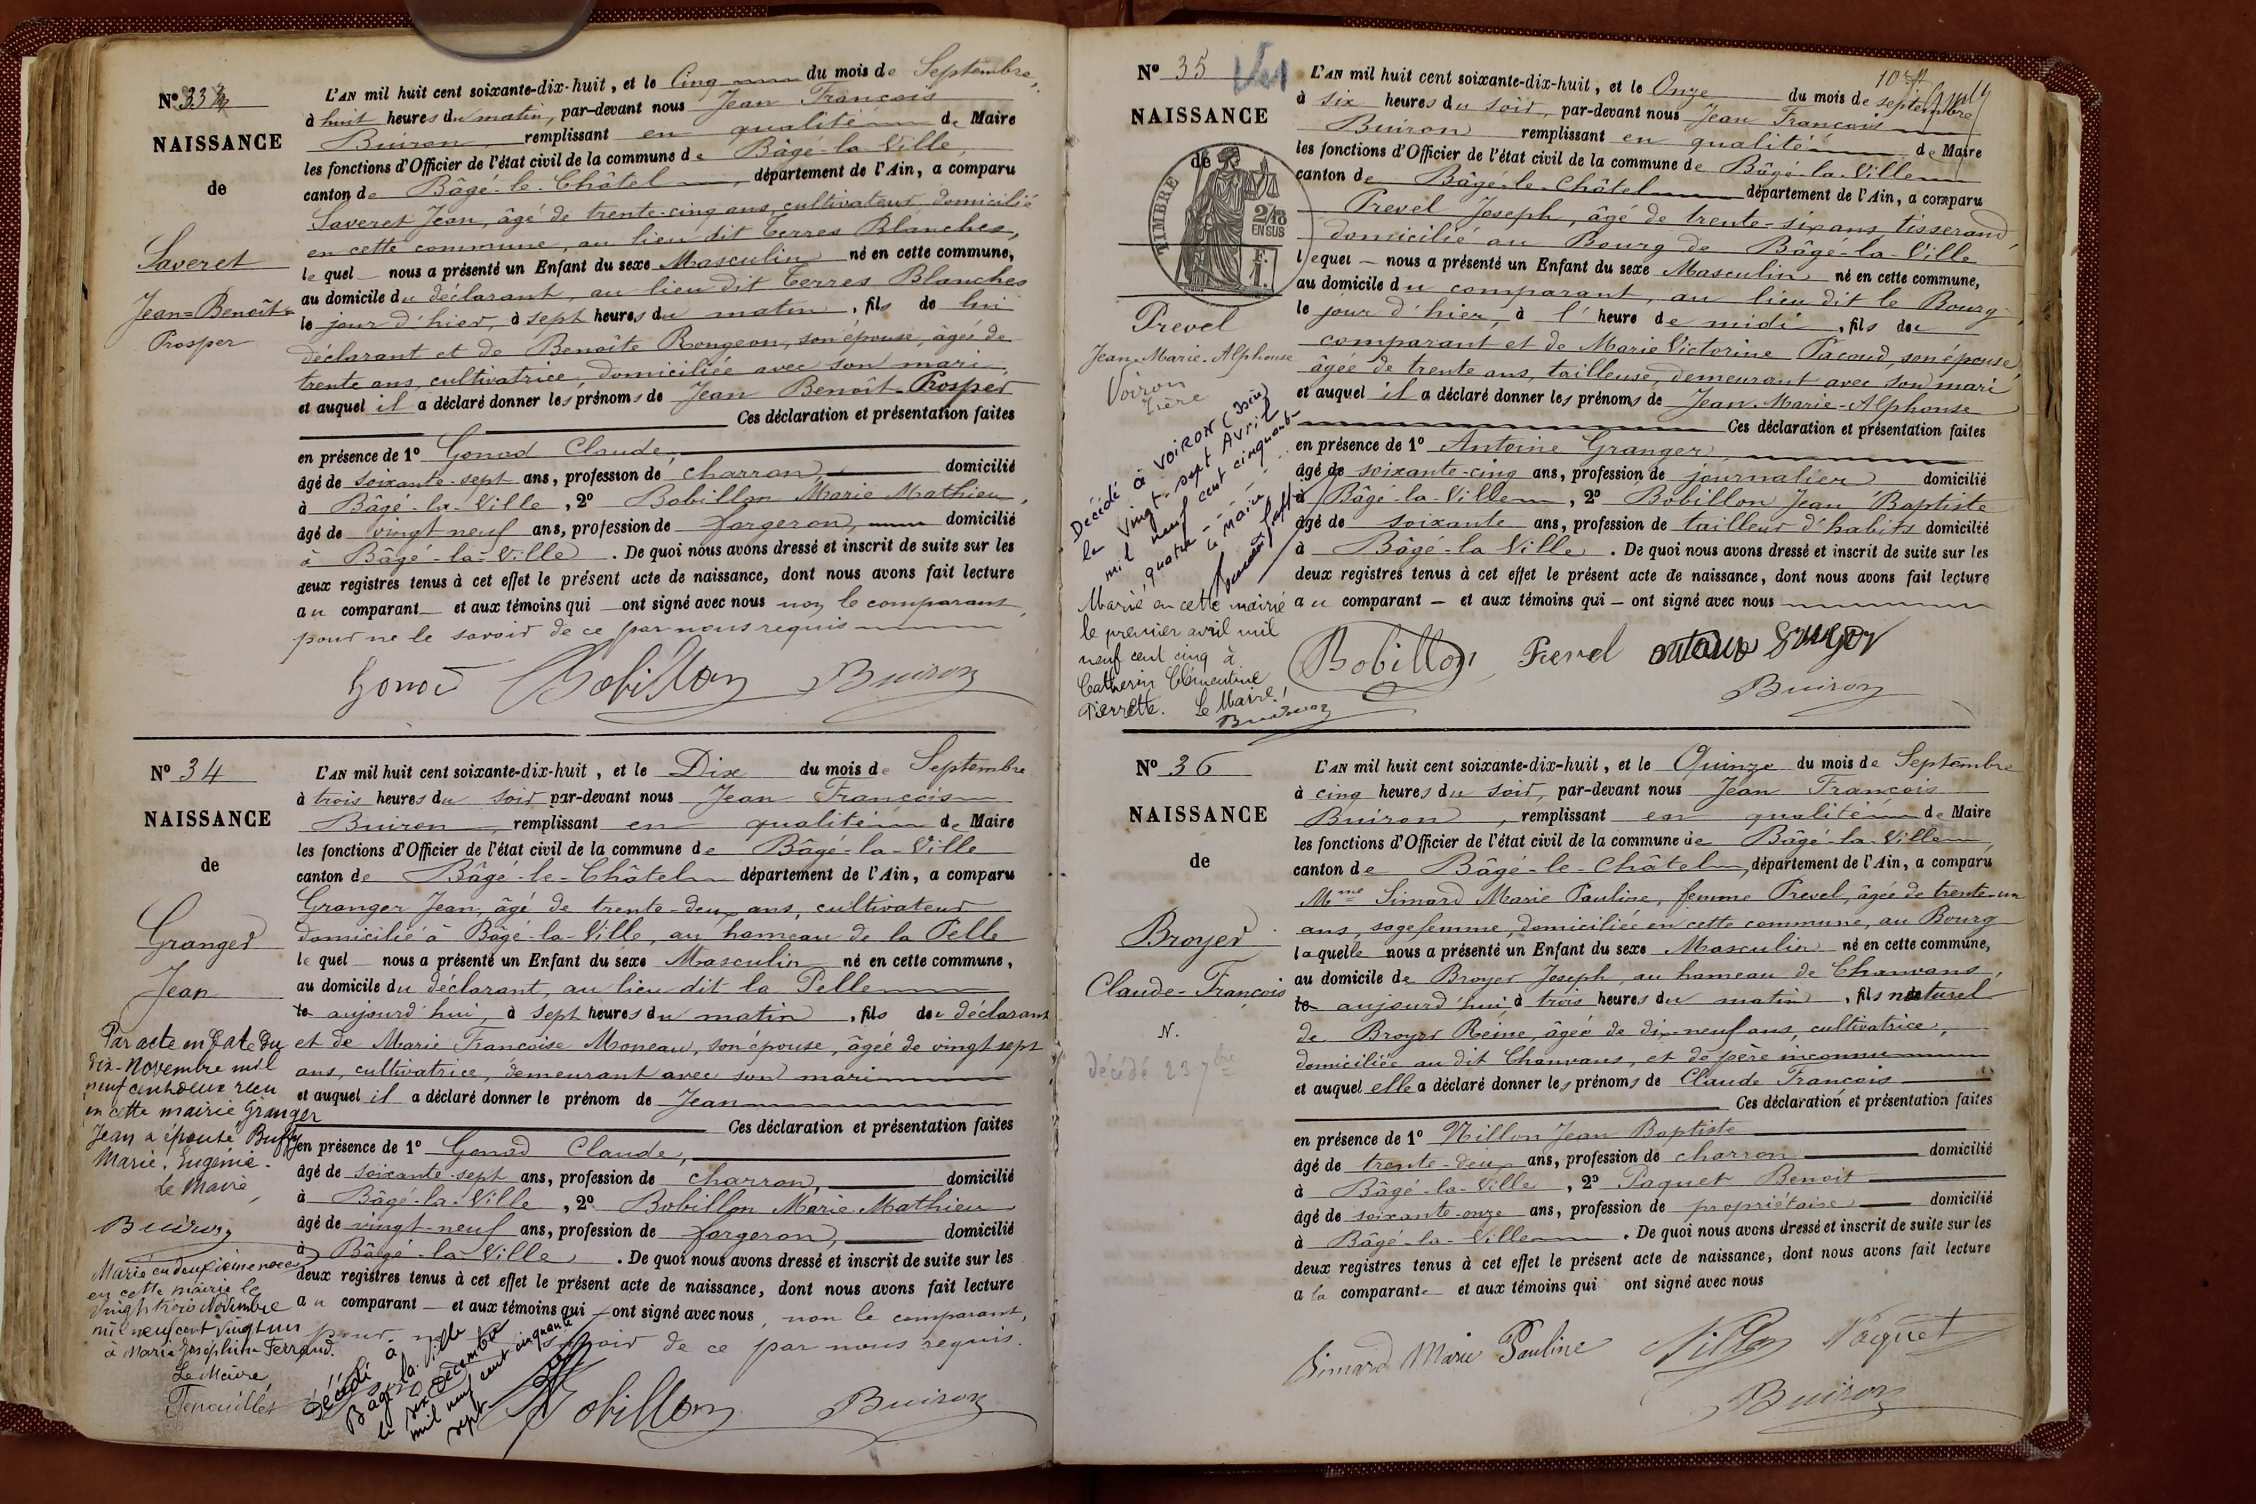 Nº 33
NAISSANCE
de
Saveret
Jean=Benoît=
Prosper
L'AN mil huit cent soixante-dix-huit, et le Cinq du mois de Septembre,
à huit heures du matin, par-devant nous Jean François
Buiron, remplissant en qualité de Maire
les fonctions d'Officier de l'état civil de la commune de Bâgé-la-Ville,
canton de Bâgé-le-Châtel, département de l'Ain, a comparu
Saveret Jean, âgé de trente-cinq ans, cultivateur, domicilié
en cette commune, au lieu dit Terres Blanches,
lequel nous a présenté un Enfant du sexe Masculin né en cette commune,
au domicile du déclarant, au lieu dit Terres Blanches
le jour d'hier, à sept heures du matin, fils de lui
déclarant et de Benoîte Rongeon, son épouse, âgée de
trente ans, cultivatrice, domiciliée avec son mari
et auquel il a déclaré donner les prénoms de Jean Benoît-Prosper
Ces déclaration et présentation faites
en présence de 1º Gonod Claude,
âgé de soixante-sept ans, profession de charron, domicilié
à Bâgé-la-Ville, 2º Bobillon Marie Mathieu,
âgé de vingt neuf ans, profession de forgeron, domicilié
à Bâgé-la-Ville. De quoi nous avons dressé et inscrit de suite sur les
deux registres tenus à cet effet le présent acte de naissance, dont nous avons fait lecture
au comparant et aux témoins qui ont signé avec nous non le comparant,
pour ne le savoir de ce par nous requis
Gonod Bobillon Buiron
Nº 34
NAISSANCE
de
Granger
Jean
Par acte en date du
dix-Novembre mil
neuf cent deux reçu
en cette mairie Granger
Jean a épousé Buffy
Marie. Eugénie.
Le Maire
Buiron
Marié en deuxième noces
en cette mairie le
vingt trois Novembre
mil neuf cent vingt un
à Marie Joséphine Ferrand.
Le Maire,
Fenouillet
L'AN mil huit cent soixante-dix-huit, et le Dix du mois de Septembre
à trois heures du soir par-devant nous Jean François
Buiron, remplissant en qualité de Maire
les fonctions d'Officier de l'état civil de la commune de Bâgé-la-Ville
canton de Bâgé-le-Châtel département de l'Ain, a comparu
Granger Jean, âgé de trente-deux ans, cultivateur
domicilié à Bâgé-la-Ville, au hameau de la Pelle
lequel nous a présenté un Enfant du sexe Masculin né en cette commune,
au domicile du déclarant, au lieu dit la Pelle
le aujourd'hui, à sept heures du matin, fils du déclarant
et de Marie Françoise Moneau, son épouse, âgée de vingt sept
ans, cultivatrice, demeurant avec son mari
et auquel il a déclaré donner le prénom de Jean
Ces déclaration et présentation faites
en présence de 1º Gonod Claude,
âgé de soixante-sept ans, profession de charron, domicilié
à Bâgé-la-Ville, 2º Bobillon Marie Mathieu
âgé de vingt-neuf ans, profession de forgeron, domicilié
à Bâgé-la-Ville. De quoi nous avons dressé et inscrit de suite sur les
deux registres tenus à cet effet le présent acte de naissance, dont nous avons fait lecture
au comparant et aux témoins qui ont signé avec nous, non le comparant,
pour ne le savoir de ce par nous requis.
Décédé à
Bâgé-la-Ville
le six Décembre
mil neuf cent cinquante
sept
Bobillon Buiron
Nº 35
NAISSANCE
de
TIMBRE
2/10
EN SUS
F.
1.
Prevel
Jean-Marie-Alphonse
Voiron
Isère
Décédé à VOIRON (Isère)
le vingt-sept Avril
mil neuf cent cinquante-
quatre
Le Maire
Marié en cette mairie
le premier avril mil
neuf cent cinq à
Catherin Clémentine
Pierrette. Le Maire!
Buiron
L'AN mil huit cent soixante-dix-huit, et le Onze du mois de septembre
à six heures du soir, par-devant nous Jean François
Buiron remplissant en qualité de Maire
les fonctions d'Officier de l'état civil de la commune de Bâgé-la-Ville
canton de Bâgé-le-Châtel département de l'Ain, a comparu
Prevel Joseph, âgé de trente-six ans, tisserand,
domicilié au Bourg de Bâgé-la-Ville
lequel nous a présenté un Enfant du sexe Masculin né en cette commune,
au domicile du comparant, au lieu dit le Bourg,
le jour d'hier, à l'heure de midi, fils du
comparant et de Marie Victorine Pacoud, son épouse,
âgée de trente ans, tailleuse, demeurant avec son mari
et auquel il a déclaré donner les prénoms de Jean-Marie-Alphonse
Ces déclaration et présentation faites
en présence de 1º Antoine Granger,
âgé de soixante-cinq ans, profession de journalier domicilié
à Bâgé-la-Ville, 2º Bobillon Jean Baptiste
âgé de soixante ans, profession de tailleur d'habits domicilié
à Bâgé-la Ville. De quoi nous avons dressé et inscrit de suite sur les
deux registres tenus à cet effet le présent acte de naissance, dont nous avons fait lecture
au comparant et aux témoins qui ont signé avec nous
Bobillon Prevel antoine Granger
Buiron
Nº 36
NAISSANCE
de
Broyer
Claude-François
N.
décédé 23 7bre
L'AN mil huit cent soixante-dix-huit, et le Quinze du mois de Septembre
à cinq heures du soir, par-devant nous Jean François
Buiron, remplissant en qualité de Maire
les fonctions d'Officier de l'état civil de la commune de Bâgé-la-Ville
canton de Bâgé-le-Châtel, département de l'Ain, a comparu
Mme Simard Marie Pauline, femme Prevel, âgée de trente-un
ans, sage femme, domiciliée en cette commune, au Bourg
laquelle nous a présenté un Enfant du sexe Masculin né en cette commune,
au domicile de Broyer Joseph, au hameau de Chanvans,
le aujourd'hui à trois heures du matin, fils naturel
de Broyer Reine, âgée de dix-neuf ans, cultivatrice,
domiciliée au dit Chanvans, et de père inconnu
et auquel elle a déclaré donner les prénoms de Claude François
Ces déclaration et présentation faites
en présence de 1º Nillon Jean Baptiste
âgé de trente-deux ans, profession de charron domicilié
à Bâgé-la-Ville, 2º Paquet Benoit
âgé de soixante-onze ans, profession de propriétaire domicilié
à Bâgé-la-Ville. De quoi nous avons dressé et inscrit de suite sur les
deux registres tenus à cet effet le présent acte de naissance, dont nous avons fait lecture
a la comparante et aux témoins qui ont signé avec nous
Simard Marie Pauline Nillon Paquet
Buiron